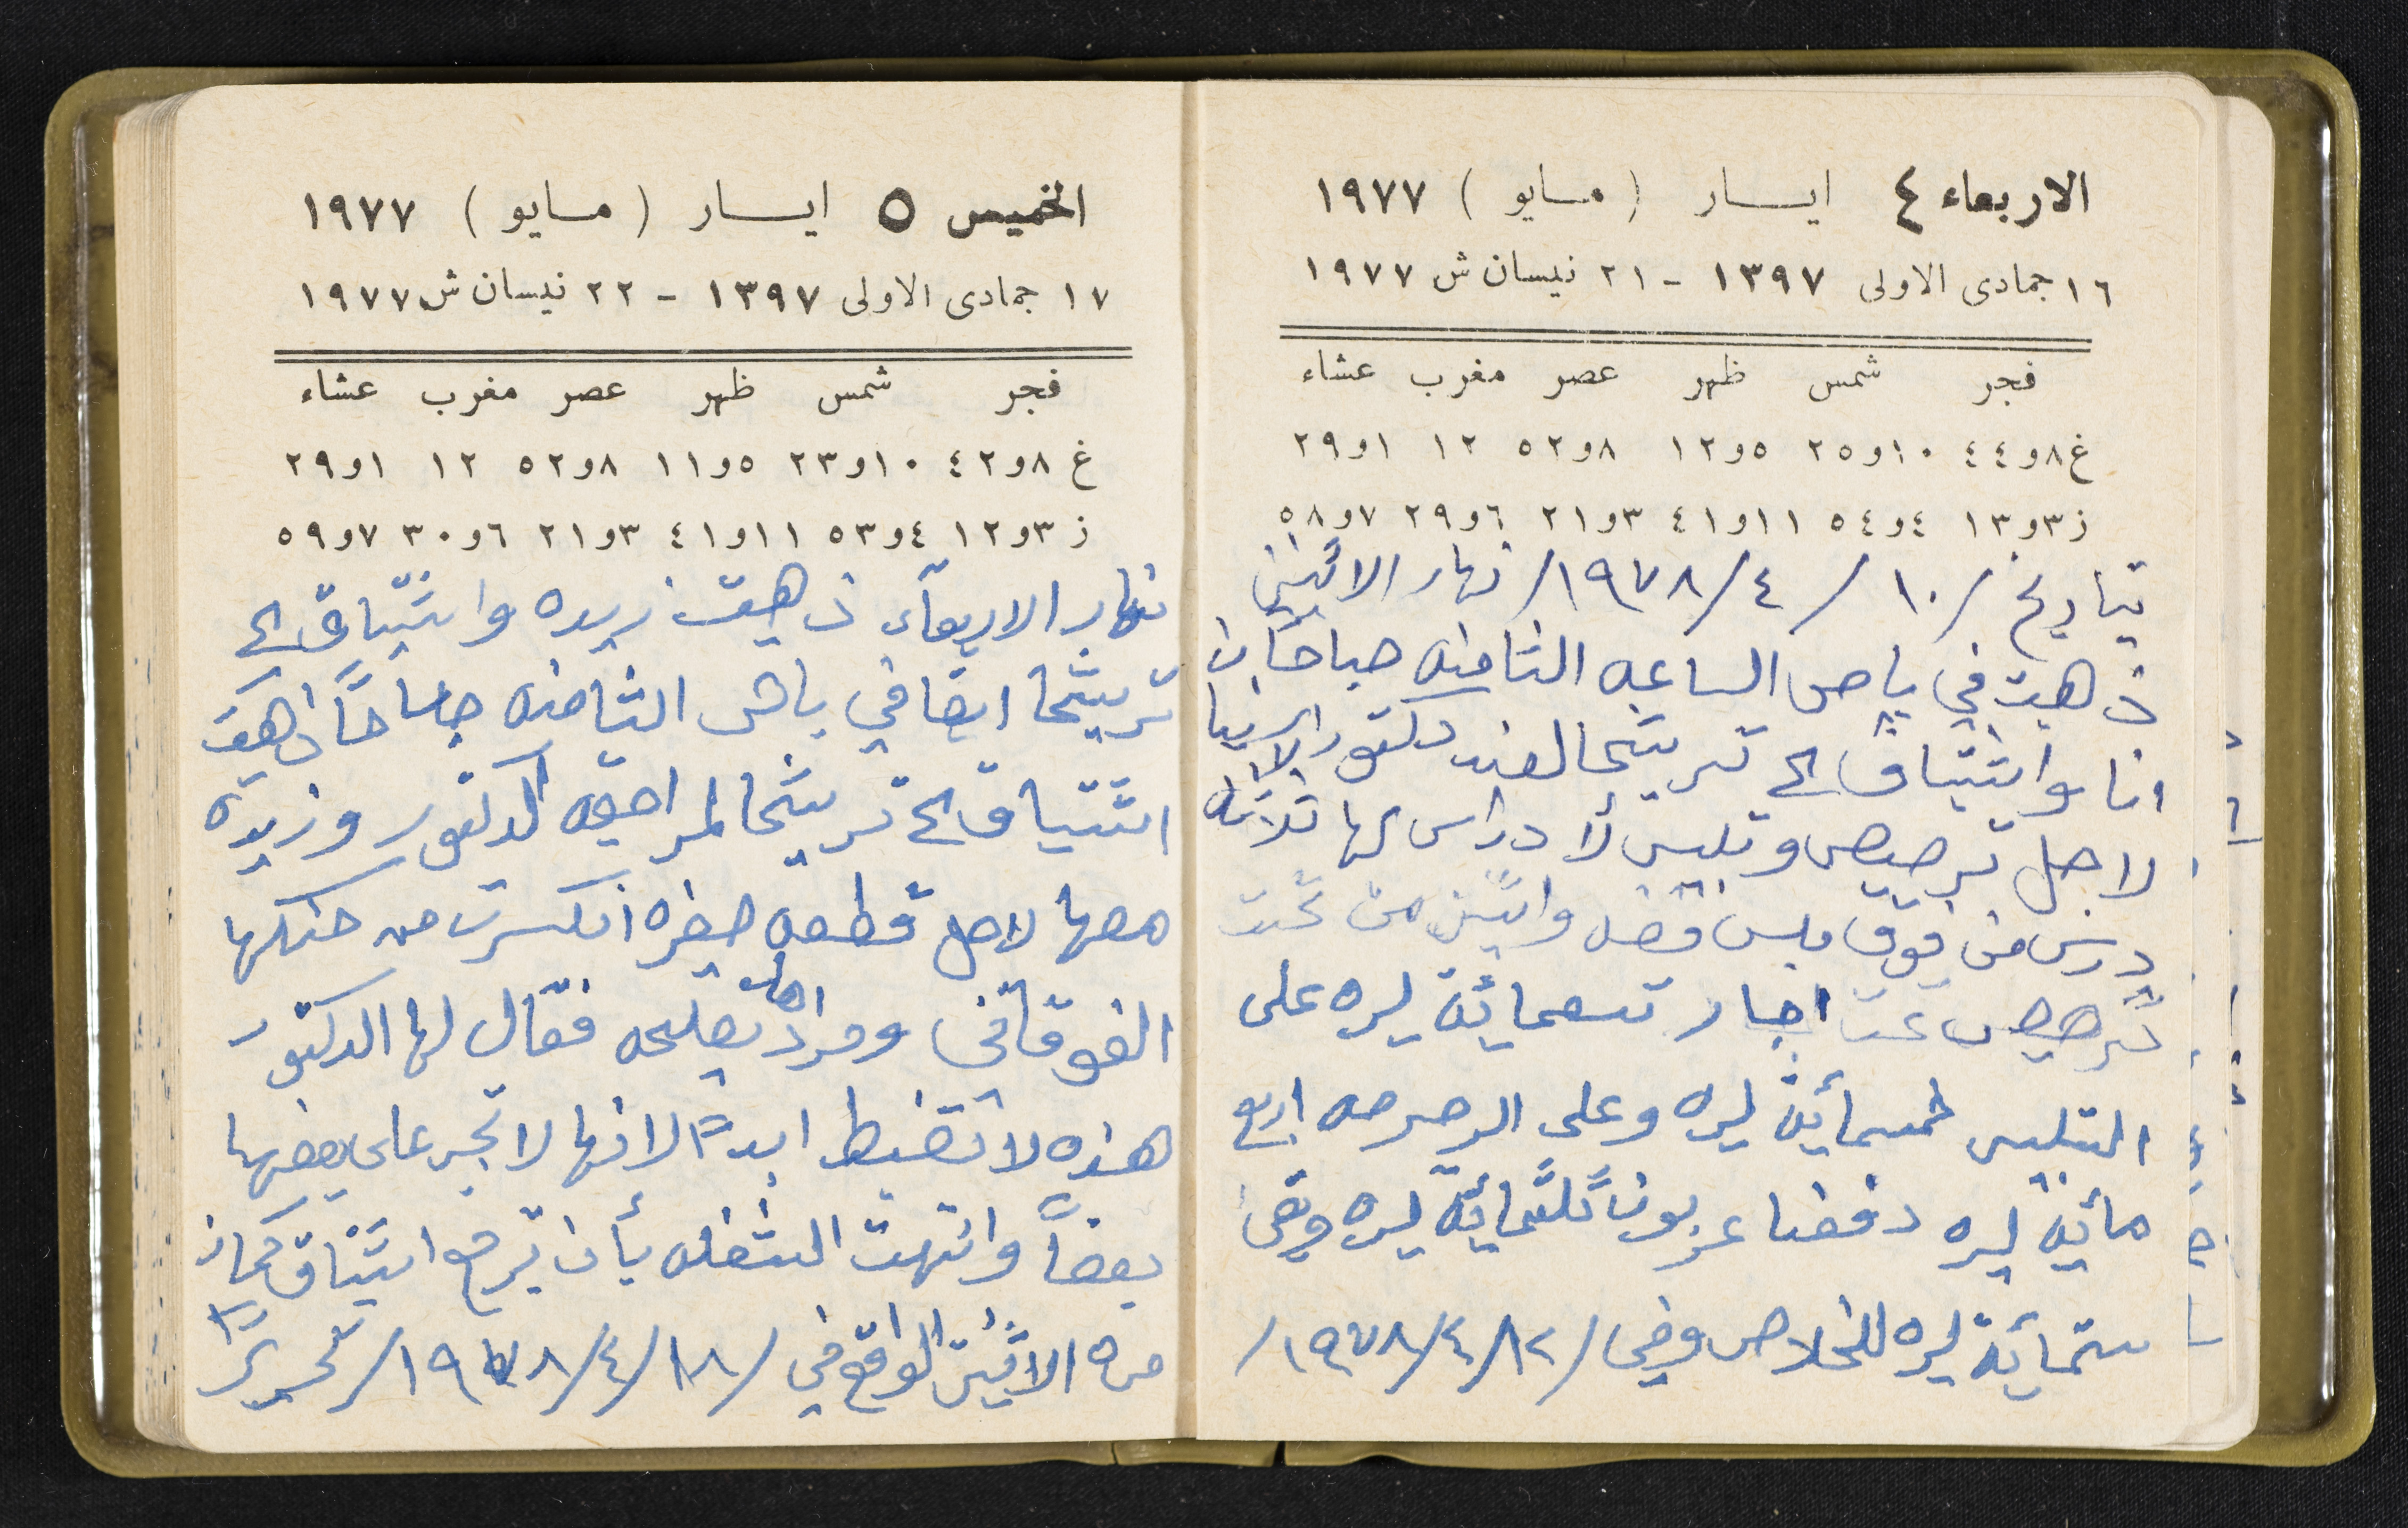 الاربعاء ٤ ايسار (مسايو) ١٩٧٧
١٦ جمادى الاولى ١٣٩٧ - ٢١ نيسان ش ١٩٧٧
فجر شمس ظهر عصر مغرب عشاء
غ ٨و٤٤ ١٠و٢٥ ٥و١٢ ٨و٥٢ ١٢ ١و٢٩
ز ٣و١٣ ٤و٥٤ ١١و٤١ ٣و٢١ ٦و٢٩ ٧و٥٨
بتاريخ /١٠/٤/١٩٧٨/ نهار الاثنين
ذهبت في باص الساعه الثامنه صباحا
انا واشتياق الى تريتحا لعند دكتور
لاجل ترصيص وتلبيس لأدراس لها ثلاثه
درس من فوق واثنين من تحت
ترصيص اجار تسعمائة ليره على
التلبيس خمسمائة ليره وعلى الرصرصه اربع
مائة ليره دفعنا عربوناً ثلثمائة ليره وبقى
ستمائة ليره للخلاص وفي /١٢/٤/١٩٧٨/
الخميس ٥ ايسار (مسايو) ١٩٧٧
١٧ جمادى الاولى ١٣٩٧ - ٢٢ نيسان ش ١٩٧٧
فجر شمس ظهر عصر مغرب عشاء
غ ٨و٤٢ ١٠و٢٣ ٥و١١ ٨و٥٢ ١٢ ١و٢٩
ز ٣و١٢ ٤و٥٣ ١١و٤١ ٣و٢١ ٦و٣٠ ٧و٥٩
نهار الاربعآء ذهبت زيده واشتياق الى
تريتحا ايضا في باص الثامنه صباحاً ذهبت
اشتياق الى تريتحا لمراجعة الدكتور وزيده
معها لاجل قطعه صغره انكسرت من حنكها
الفوقاني ومرادها تصليحه فقال لها الدكتور
هذه لا تضبط ابداً لانها لا تجبر على بعضها
بعضاً وانتهت الشغله بأن ترجع اشتياق كمان
مره الاثنين الواقع في /١٨/٤/١٩٧٨/ تحريراً